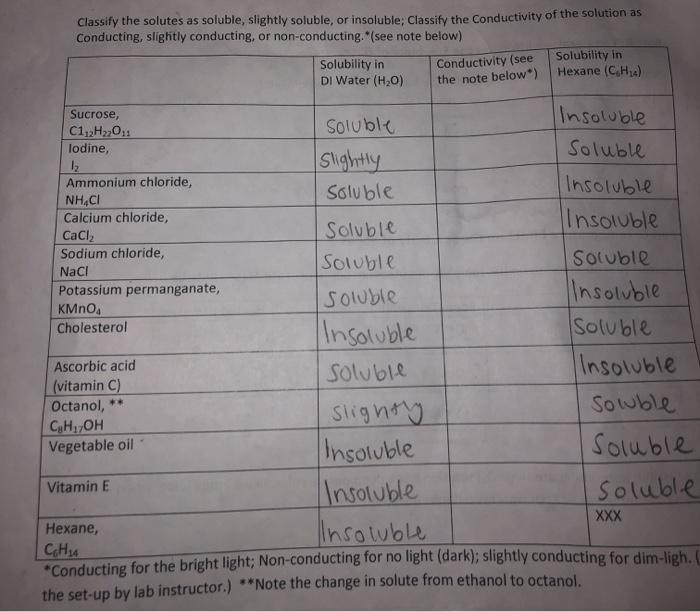 Classify the solutes as soluble, slightly soluble, or insoluble; Classify the Conductivity of the solution as
Conducting, slightly conducting, or non-conducting.*(see note below)
Solubility in DI Water (H₂O)
Conductivity (see the note below*)
Solubility in Hexane (C₆H₁₄)
Sucrose, C1₁₂H₂₂O₁₁ Soluble Insoluble
Iodine, I₂ Slightly Soluble
Ammonium chloride, NH₄Cl Soluble Insoluble
Calcium chloride, CaCl₂ Soluble Insoluble
Sodium chloride, NaCl Soluble Soluble
Potassium permanganate, KMnO₄ Soluble Insoluble
Cholesterol Insoluble Soluble
Ascorbic acid (vitamin C) Soluble Insoluble
Octanol, ** C₈H₁₇OH Slightly Soluble
Vegetable oil Insoluble Soluble
Vitamin E Insoluble Soluble
Hexane, C₆H₁₄ Insoluble XXX
*Conducting for the bright light; Non-conducting for no light (dark); slightly conducting for dim-ligh. (
the set-up by lab instructor.) **Note the change in solute from ethanol to octanol.